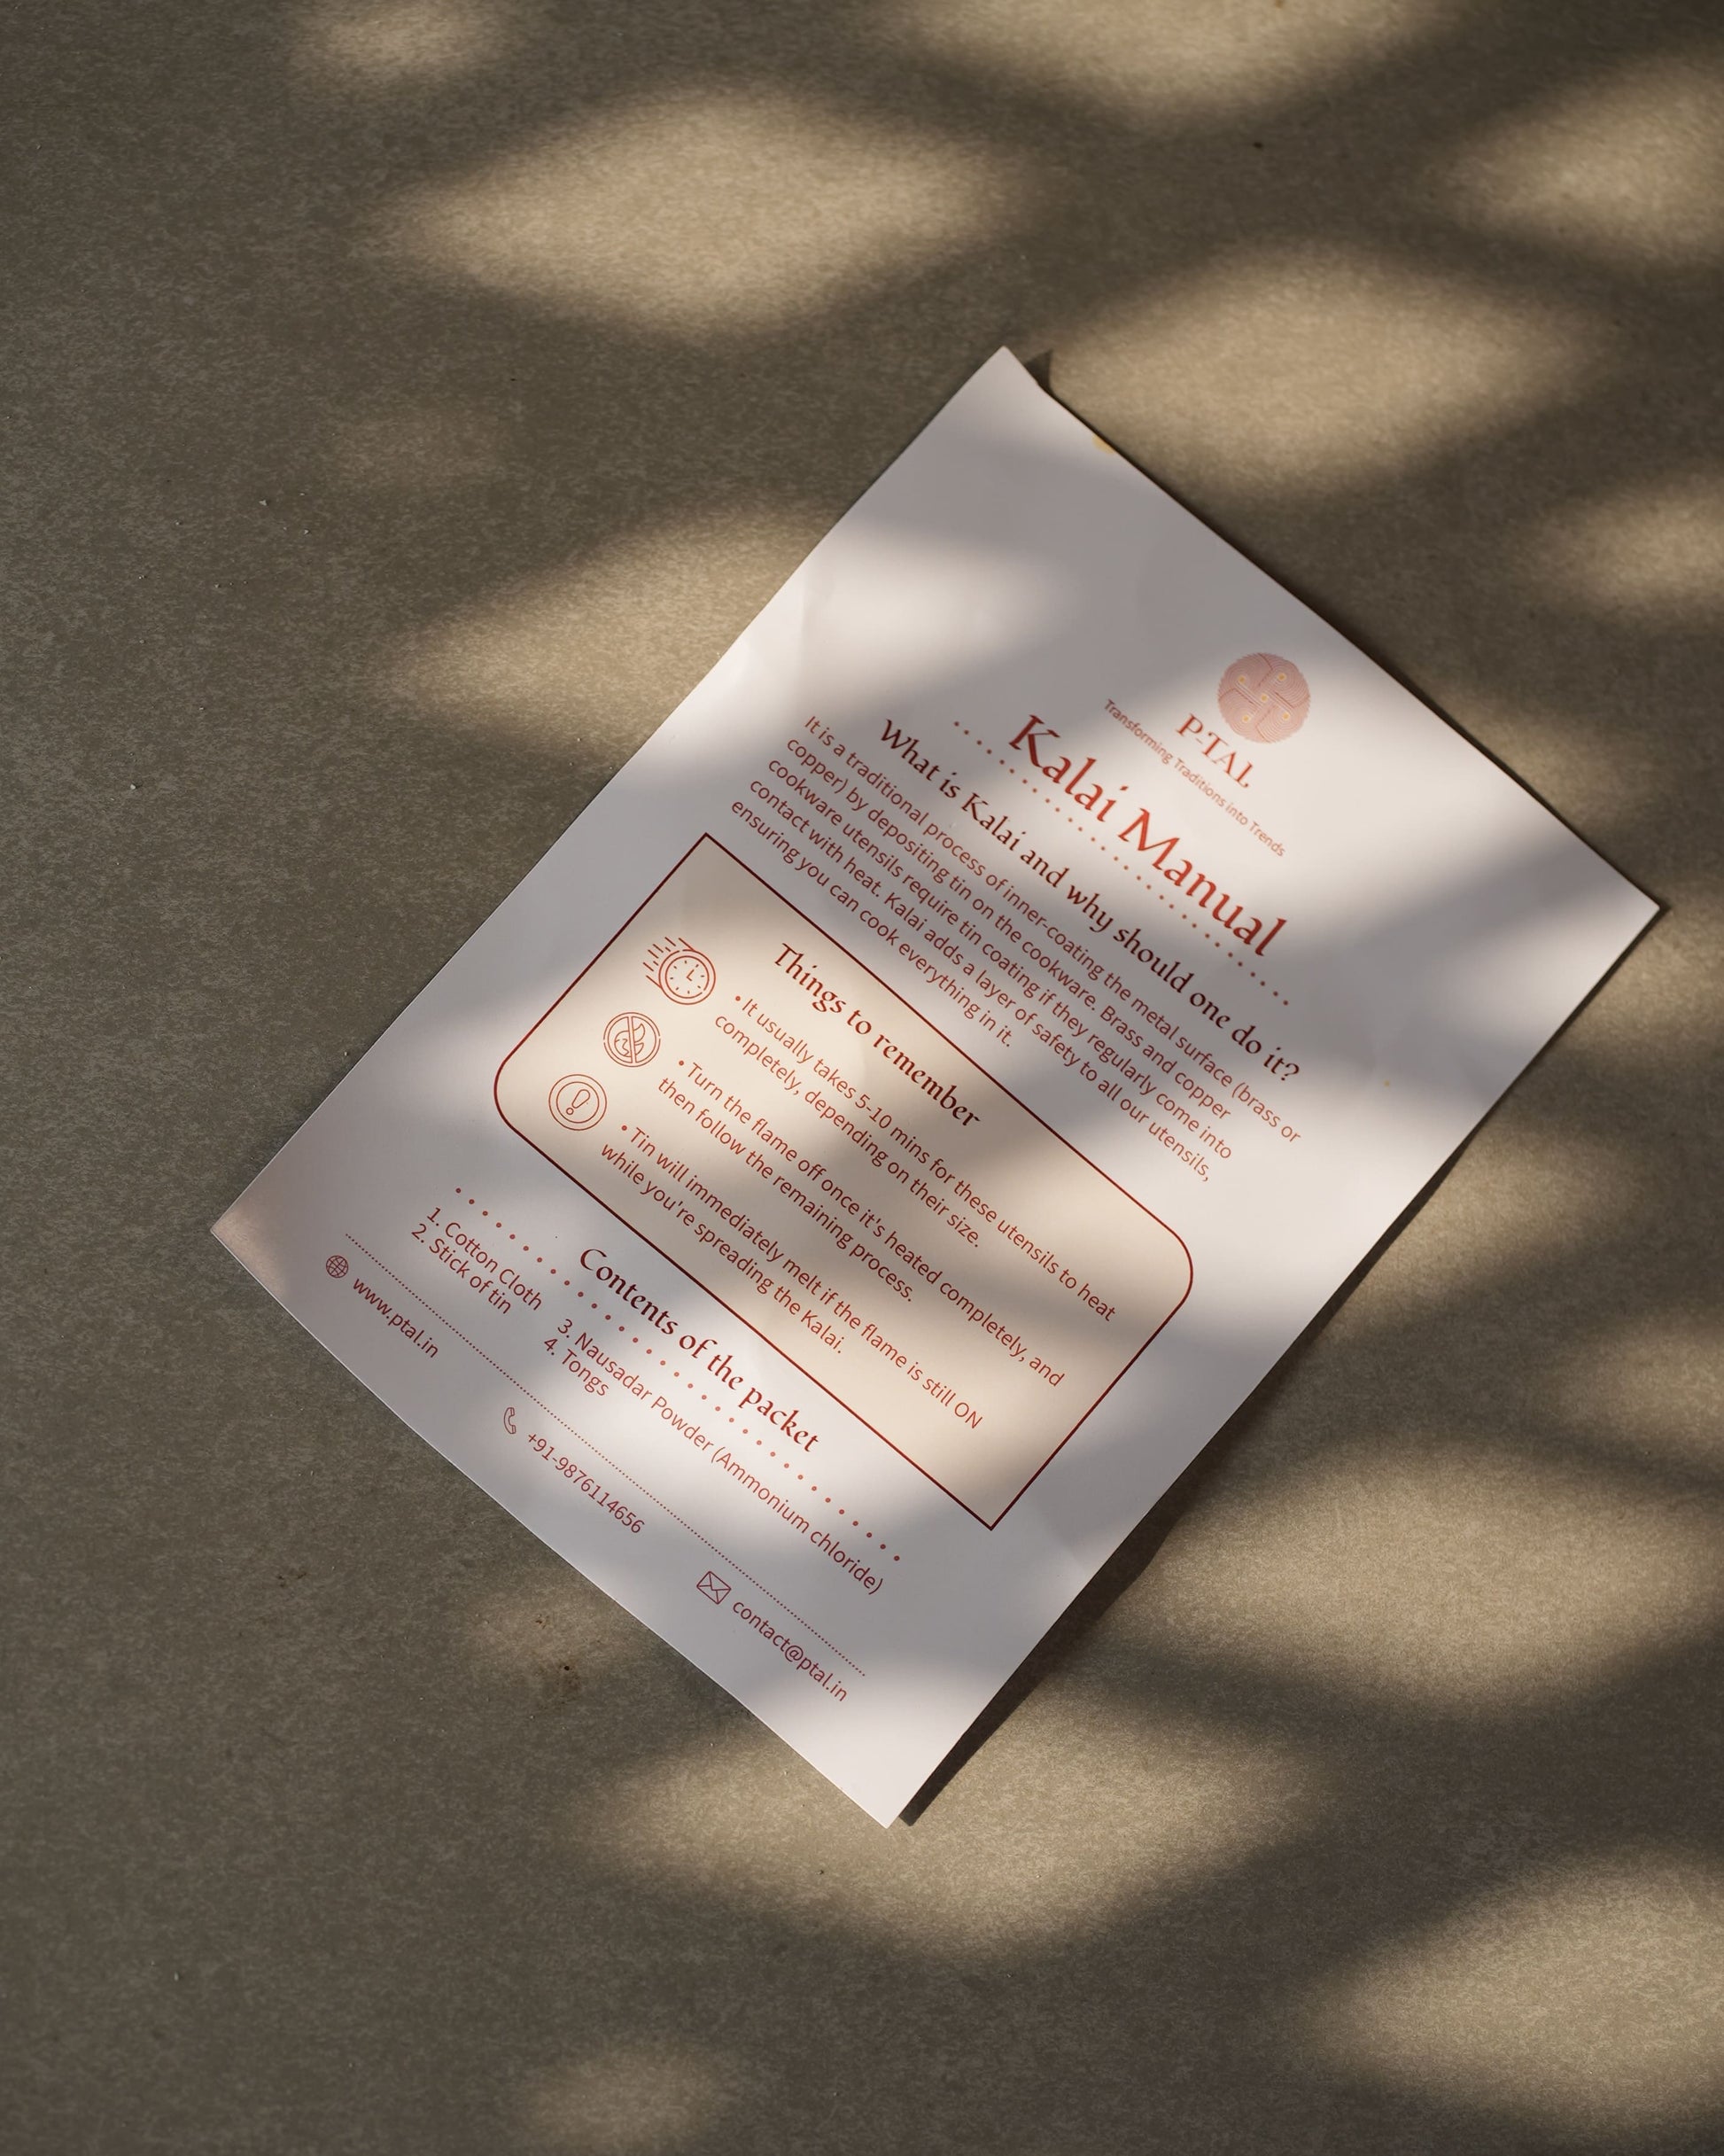 P-TAL
Transforming Traditions into Trends
Kalai Manual
What is Kalai and why should one do it?
It is a traditional process of inner-coating the metal surface (brass or
copper) by depositing tin on the cookware. Brass and copper
cookware utensils require tin coating if they regularly come into
contact with heat. Kalai adds a layer of safety to all our utensils,
ensuring you can cook everything in it.
Things to remember
• It usually takes 5-10 mins for these utensils to heat
completely, depending on their size.
• Turn the flame off once it's heated completely, and
then follow the remaining process.
• Tin will immediately melt if the flame is still ON
while you're spreading the Kalai.
Contents of the packet
1. Cotton Cloth
2. Stick of tin
3. Nausadar Powder (Ammonium chloride)
4. Tongs
www.ptal.in
+91-9876114656
contact@ptal.in